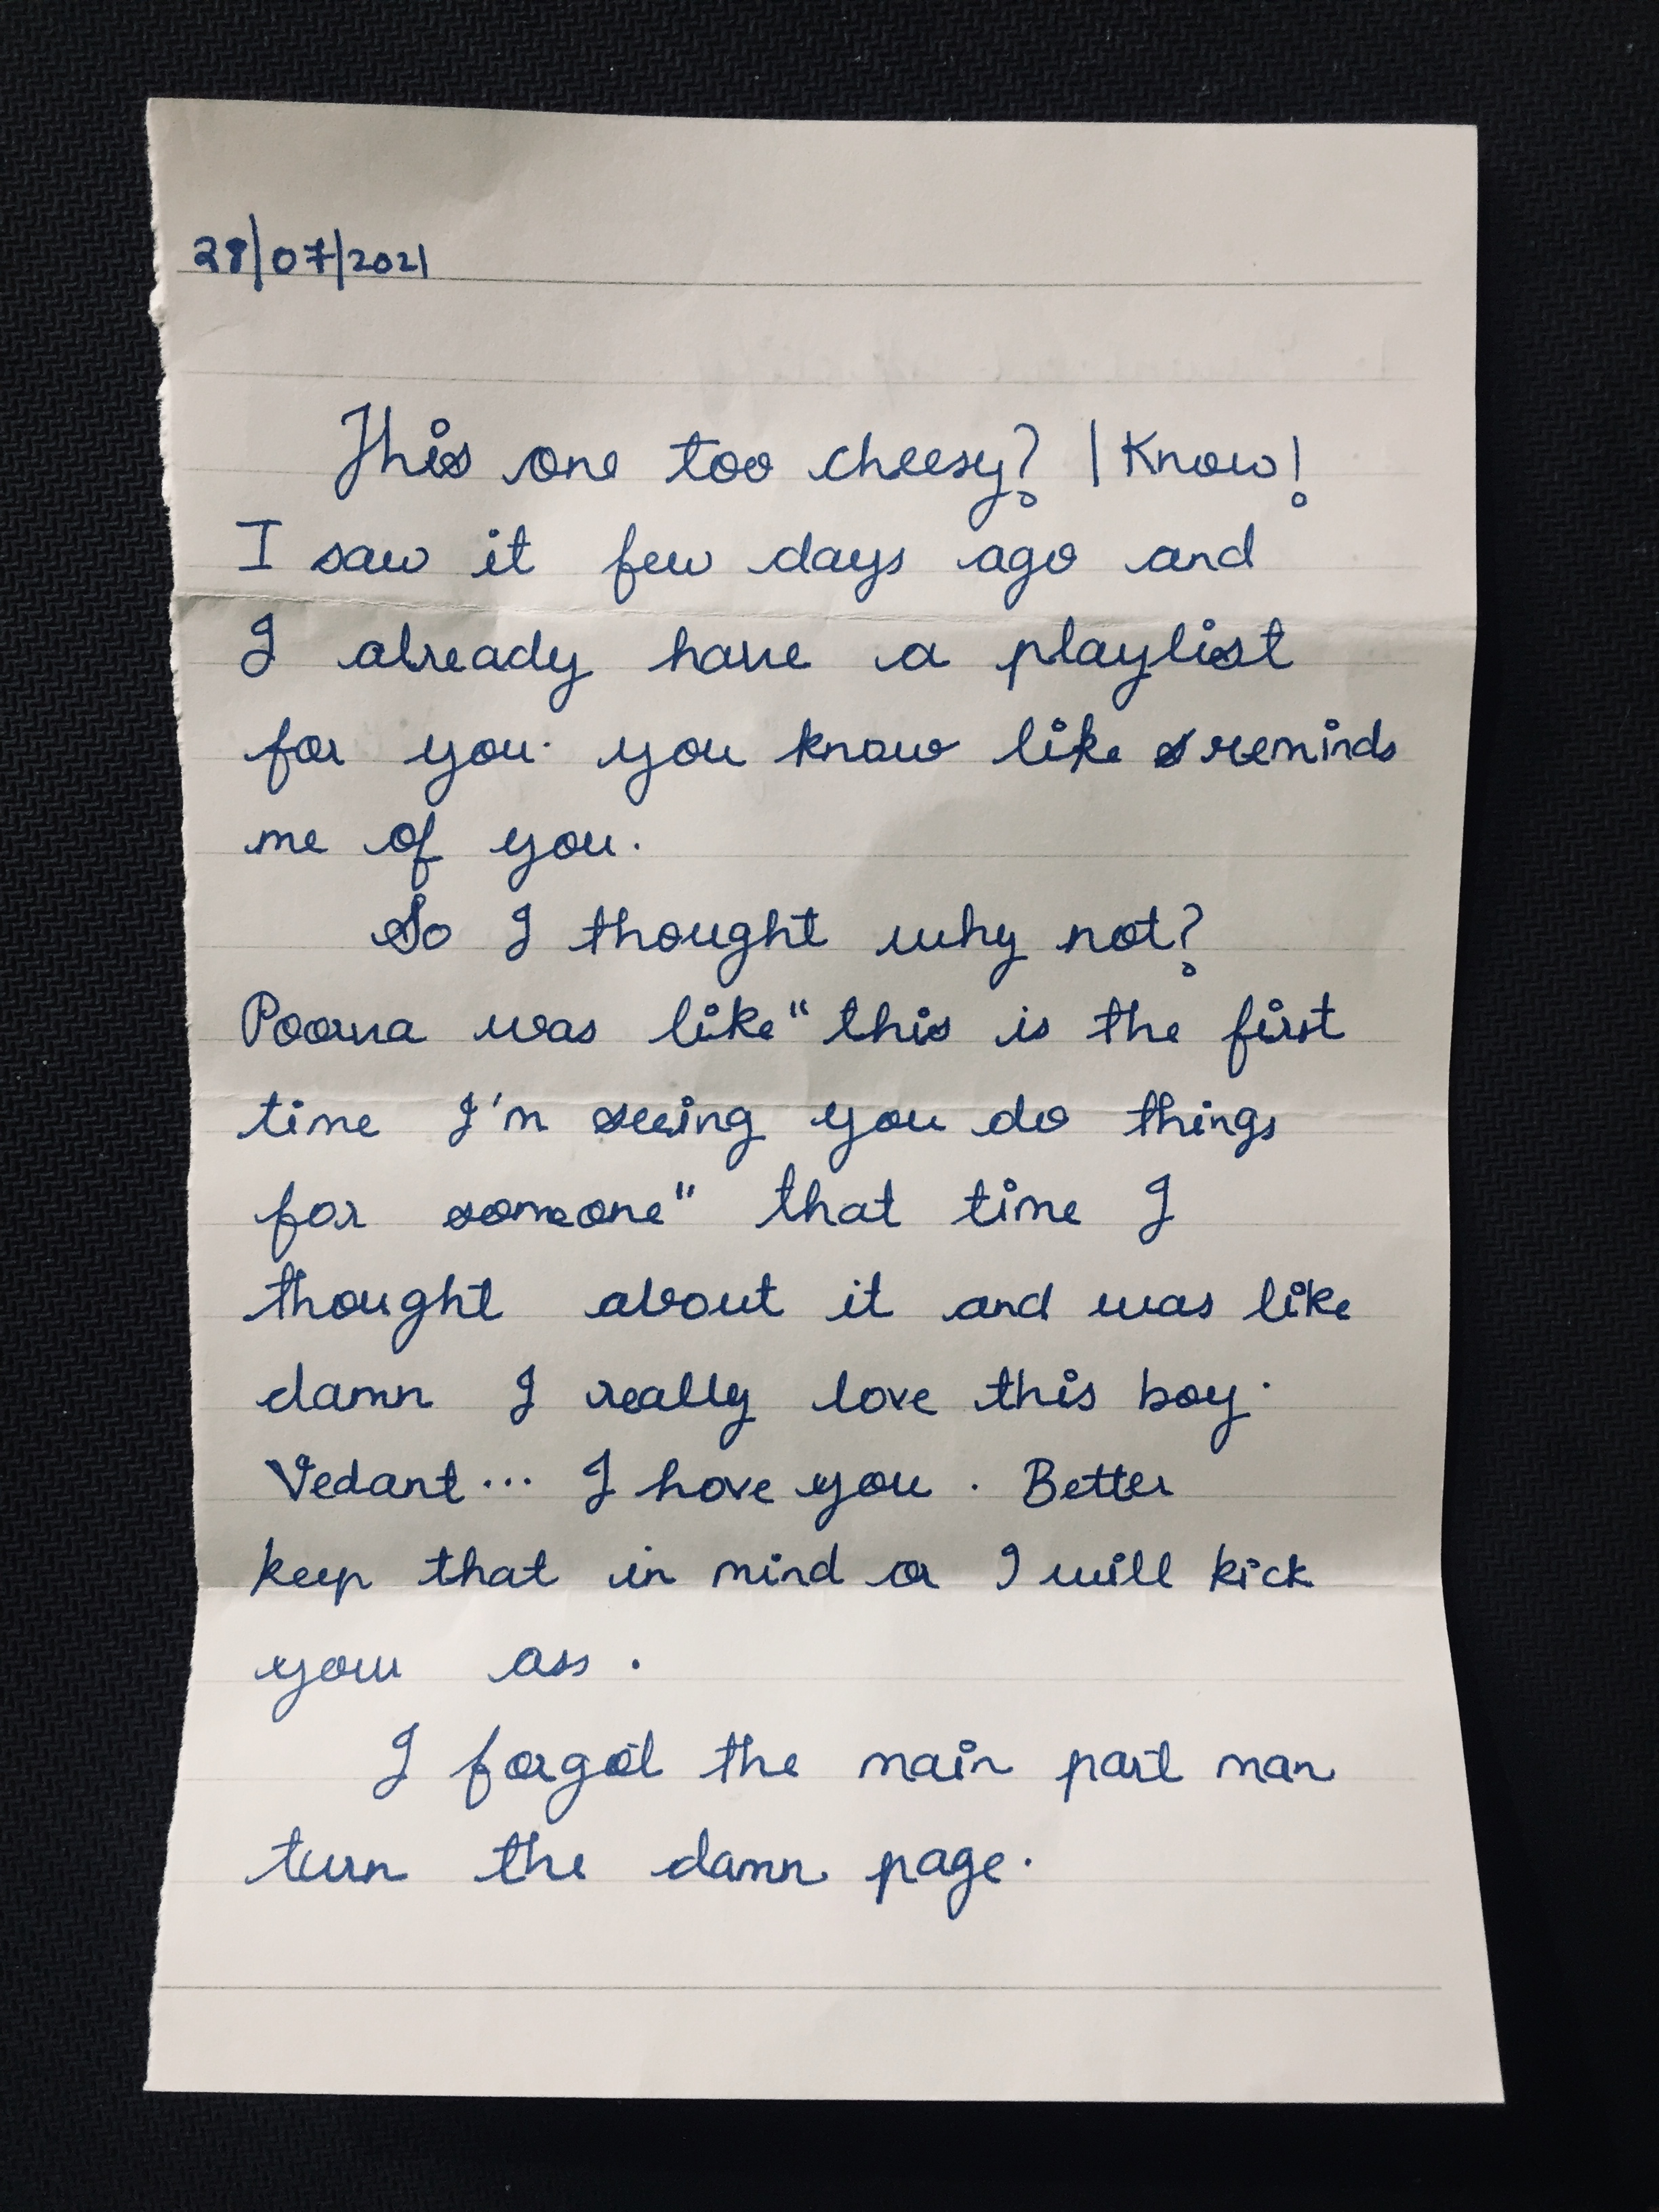 28/07/2021
This one too cheesy? I Know!
I saw it few days ago and
I already have a playlist
for you. you know like reminds
me of you.
So I thought why not?
Poorna was like "this is the first
time I'm seeing you do things
for someone" that time I
thought about it and was like
damn I really love this boy.
Vedant... I hove you. Better
keep that in mind or I will kick
your ass.
I forgot the main part man
turn the damn page.